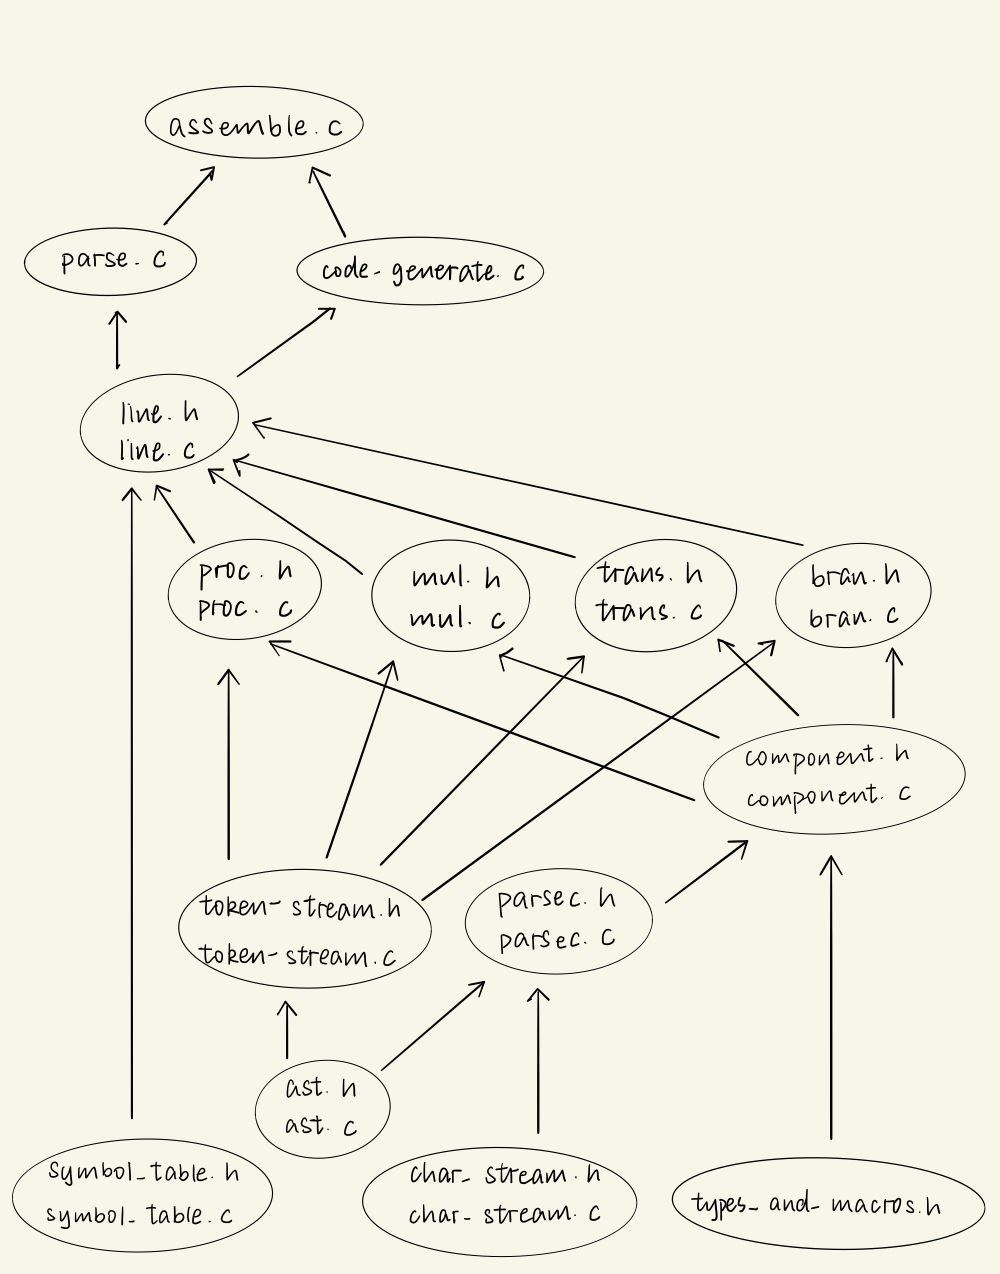 assemble.c
parse.c
code_generate.c
line.h
line.c
proc.h
proc.c
mul.h
mul.c
trans.h
trans.c
bran.h
bran.c
component.h
component.c
token-stream.h
token-stream.c
parsec.h
parsec.c
ast.h
ast.c
symbol_table.h
symbol_table.c
char_stream.h
char_stream.c
types_and_macros.h